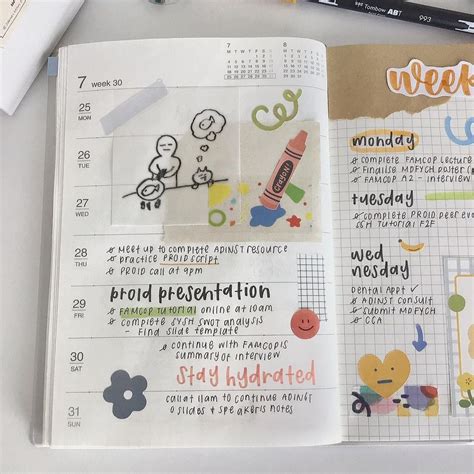 Tombow ABT 993
7 week 30
7
8
25
MON
26
TUE
27
WED
CRAYON
28
THU
MEET UP TO COMPLETE ADINST RESOURCE
PRACTICE PROID SCRIPT
PROID CALL AT 9PM
29
FRI
PROID PRESENTATION
FAMCOP TUTORIAL ONLINE AT 10AM
COMPLETE SYSH SWOT ANALYSIS
- FIND SLIDE TEMPLATE
30
SAT
CONTINUE WITH FAMCOPIS
SUMMARY OF INTERVIEW
STAY HYDRATED
31
SUN
CALL AT 11AM TO CONTINUE ADINST
SLIDES + SPEAKERS NOTES
week
monday
COMPLETE FAMCOP LECTURE
FINALISE MDFYCH POSTER
FAMCOP A2 - INTERVIEW
tuesday
COMPLETE PROID PEER
SYSH TUTORIAL F2F
wed
nesday
Dental Appt ✓
ADINST CONSULT
SUBMIT MDFYCH
CCA